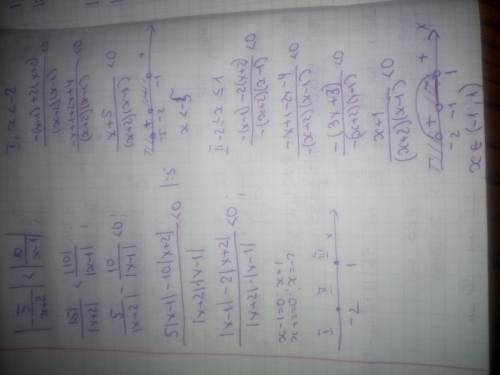 |-5/(x+2)| < |10/(x-1)|
|5|/|x+2| < |10|/|x-1|
5/|x+2| - 10/|x-1| < 0
(5|x-1| - 10|x+2|)/(|x+2|·|x-1|) < 0 |:5
(|x-1| - 2|x+2|)/(|x+2|·|x-1|) < 0
x-1=0; x=1
x+2=0; x=-2
I II III x
-2 1
I. x<-2
(-(x-1)+2(x+2))/((x+2)(x-1)) < 0
(-x+1+2x+4)/((x+2)(x-1)) < 0
(x+5)/((x+2)(x-1)) < 0
-5 -2 -1
x<-5
II -2≤x≤1
(-(x-1)-2(x+2))/(-(x+2)(x-1)) < 0
(-x+1-2x-4)/(-(x+2)(x-1)) < 0
(-(3x+3))/(-(x+2)(x-1)) < 0
(x+1)/((x+2)(x-1)) < 0
- + - + x
-2 -1 1
x ∈ (-1; 1)